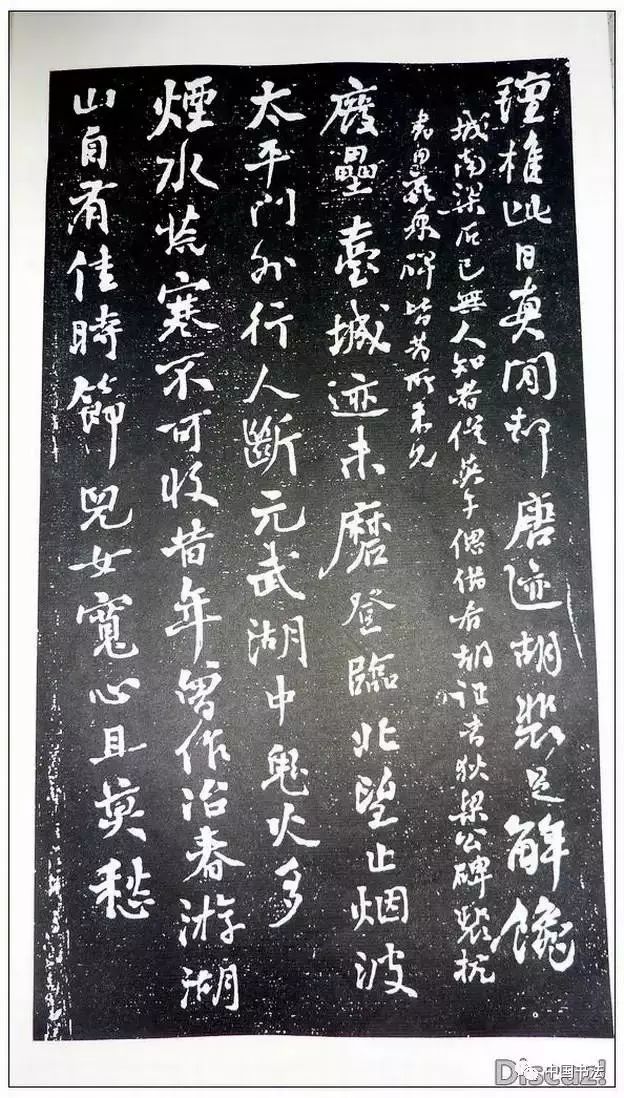 椎此日真閒却唐迹胡裴足解饞
城南梁石已無人知者僅英子偶備看胡证書狄梁公碑裴抗
書田碑皆昔所未見
廢壘臺城迹未磨登臨北望止烟波
太平門外行人斷元武湖中鬼火多
煙水荒寒不可收昔年曾作冶春游湖
山自有佳時節兒女寬心且莫愁
Discuz!
中国书法